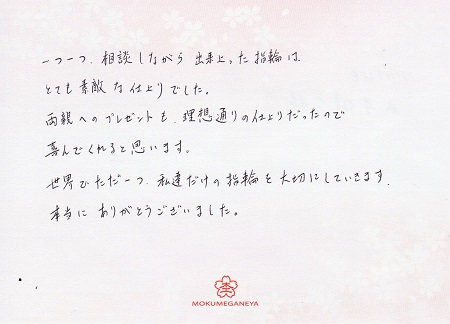 一つ一つ、相談しながら出来上った指輪は
とても素敵な仕上りでした。
両親へのプレゼントも、理想通りの仕上りだったので
喜んでくれると思います。
世界でただ一つ、私達だけの指輪を大切にしていきます.
本当にありがとうございました。
MOKUMEGANEYA